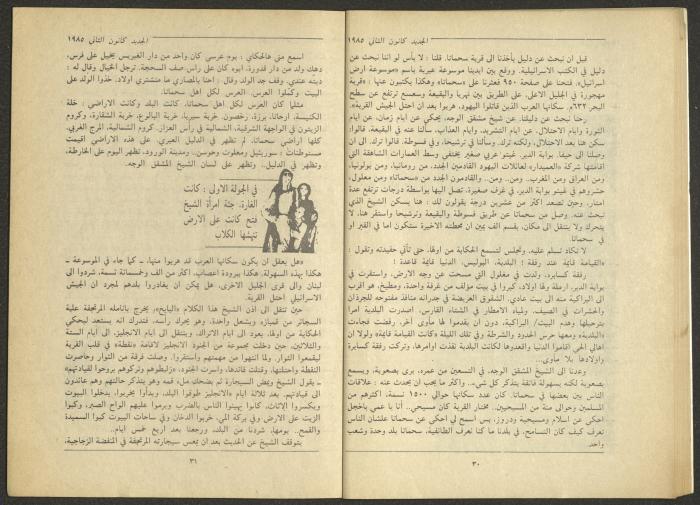 الجديد كانون الثاني ١٩٨٥
قبل ان نبحث عن دليل يأخذنا الى قرية سحماتا، قلنا : لا بأس لو اننا نبحث عن
دليل في الكتب الاسرائيلية. ووقع بين ايدينا موسوعة عبرية باسم «موسوعة ارض
اسرائيل»، فتحنا على صفحة ٩٥٠ فعثرنا على «سحماتا» وهكذا يكتبون عنها : «قرية
مهجورة في الجليل الاعلى على الطريق بين نهريا والبقيعة وسعسع ترتفع عن سطح
البحر ٦٣٢م. سكانها العرب الذين قاتلوا اليهود، هربوا بعد ان احتل الجيش القرية».
رحنا نبحث عن دليلنا، عن شيخ مشقق الوجه، يحكي عن ايام زمان، عن ايام
الثورة وايام الاحتلال، عن ايام التشريد، وايام العذاب، سألنا عنه في البقيعة، قالوا:
سكن هنا بعد الاحتلال، ولكنه ترك. وسألنا في ترشيحا، وفي فسوطة، قالوا ترك. الى ان
وصلنا الى حيفا. بوابة الدير. غيتو عربي صغير يختفي وسط العمارات الشاهقة التي
اقامتها شركة «العميدار» لعائلات اليهود القادمين الجدد، من رومانيا، ومن بولونيا،
ومن العراق ومن المغرب. ومن.. ومن.. والقادمون الجدد من «سحماتا» ومن معلول،
حشروهم في غيتو بوابة الدير، في غرف صغيرة، تصل اليها بواسطة درجات ترتفع عدة
امتار، وحين تصعد اكثر من عشرين درجة يقولون لك : هنا يسكن الشيخ الذي
تبحث عنه. وصل من سحماتا عن طريق فسوطة والبقيعة وترشيحا واستقر هنا، لا
يتحرك ولا يتنقل الى مكان، يقسم الف يمين ان محطته الاخيرة ستكون اما في القبر او
في سحماتا.
لا نكاد نسلم عليه، ونجلس لنسمع الحكاية من اولها، حتى تأتي حفيدته وتقول :
«القيامة قايمة عند رفقة ! البلدية، البوليس، الدنيا قايمة قاعدة !
رفقة كسابرة، ولدت في معلول التي مسحت عن وجه الارض، واستقرت في
بوابة الدير، ارملة ولها اولاد، كبروا في بيت مؤلف من غرفة واحدة، ومطبخ، هو اقرب
الى البراكية منه الى بيت عادي. الشقوق العريضة في جدرانه منافذ مفتوحة للجرذان
والحشرات في الصيف، ولمياه الامطار في الشتاء القارس. اصدرت البلدية امرا
بترحيلها وهدم البيت/ البراكية، دون ان يقدموا لها مأوى آخر. رفضت فجاءت
«البلدية» ومعها حرس الحدود والشرطة وفي تلك الليلة «كانت القيامة قايمة» ولولا ان
اهالي الحي اقاموا الدنيا واقعدوها لكانت البلدية نفذت اوامرها، وتركت رفقة كسابرة
واولادها بلا مأوى...
وعدنا الى الشيخ المشقق الوجه. في التسعين من عمره، يرى بصعوبة، ويسمع
بصعوبة لكنه بسهولة فائقة يتذكر كل شيء.. واكثر ما يحب ان يحدث عنه : علاقات
الناس بين بعضها في سحماتا. كان عدد سكانها حوالي ١٥٠٠ نسمة، اكثرهم من
المسلمين وحوالي مئة من المسيحيين، مختار القرية كان مسيحي.. انا يا عمي باخجل
احكي عن اسلام ومسيحية ودروز، بس اسمح لي احكي عن سحماتا علشان الناس
تعرف كيف كان التسامح، في بلدنا ما كنا نعرف الطائفية، سحماتا بلد وحدة وشعب
واحد
٣٠
الجديد كانون الثاني ١٩٨٥
اسمع مني هالحكاي : يوم عرسي كان واحد من دار الغبريس يخيل على فرس،
دهك ولد من دار قدورة، ابوه كان على راس صف السحجة. ترجل الخيال وقال له :
ديته عندي. وقف جد الولد وقال : احنا بالمصاري ما منشتري اولاد. خذوا الولد على
البيت وكملوا العرس. العرس لكل اهل سحماتا.
مثلما كان العرس لكل اهل سحماتا، كانت البلد وكانت الاراضي : خلة
الكنيسة، ارحاتا، برزة، رخصون، خربة سيريا، خربة اليالوع، خربة الشقارة، وكروم
الزيتون في الواجهة الشرقية، الشمالية في رأس العزاز. كروم الشمالية، المرج الغربي.
كلها اراضي سحماتا، لم تظهر في الدليل العبري. على هذه الاراضي اقيمت
مستوطنات : سوريئيل ومعلوت وحوسن.. ومدينة الورود، تظهر اليوم على الخارطة،
وتظهر في الدليل.. وتظهر على لسان الشيخ المشقق الوجه.
في الجولة الاولى : كانت
الغارة، جثة امرأة الشيخ
فتح كانت على الارض
تنهشها الكلاب
«هل يعقل ان يكون سكانها العرب قد هربوا منها، ـ كما جاء في الموسوعة ـ
هكذا بهذه السهولة. هكذا ببرودة اعصاب. اكثر من الف وخمسمائة نسمة، شردوا الى
لبنان والى قرى الجليل الاخرى، هل يمكن ان يغادروا بلدهم لمجرد ان الجيش
الاسرائيلي احتل القرية.
حين تنتقل الى اذن الشيخ هذا الكلام «البايخ»، يخرج بانامله المرتجفة علبة
السجائر من قمبازه ويشعل واحدة، وهو يحرك رأسه. فتدرك انه يستعد ليحكي
الحكاية من اولها. يعود الى ايام الاتراك، وينتقل الى ايام الانجليز، الى ايام الستة
والثلاثين. حين دخلت مجموعة من الجنود الانجليز لاقامة «نقطة» في قلب القرية
ليقمعوا الثوار. ولما انتهوا من مهمتهم واستقروا. وصلت فرقة من الثوار وحاصرت
النقطة واحتلتها، وقتلت قائدها، واسرت الجنود، «زلبطوهم وتركوهم يروحوا لقيادتهم»
ـ يقول الشيخ ويمض السيجارة ثم يضحك ملء فمه وهو يتذكر حالتهم وهم عائدون
الى قيادتهم. بعد ثلاثة ايام «الانجليز طوقوا البلد، وبدأوا يخربوا، يدخلوا البيوت
ويكسروا الاثاث، كانوا يهينوا الناس بالضرب ويرموا عليهم الواح الصبر، ويكبوا
الزيت على الارض وفي بركة المي، خربوا الدخان وفي ساحات البيوت كبوا السميدة
والقمح.. يومها، شردنا من البلد، ورجعنا بعد اربع خمس ايام..
يتوقف الشيخ عن الحديث بعد ان يمعس سيجارته المرتجفة في المنفضة الزجاجية،
٣١